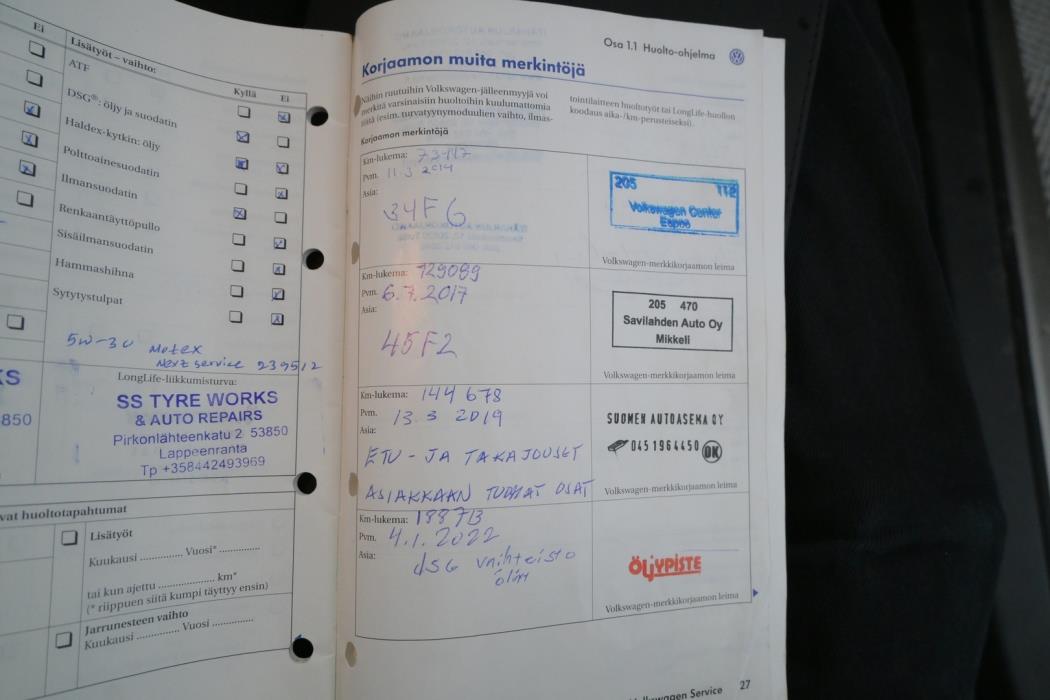 Ei
Lisätyöt – vaihto:
Kyllä Ei
ATF
DSG®: öljy ja suodatin
Haldex-kytkin: öljy
Polttoainesuodatin
Ilmansuodatin
Renkaantäyttöpullo
Sisäilmansuodatin
Hammashihna
Sytytystulpat
5W-30 Motex
Next service 239512
LongLife-liikkumisturva:
SS TYRE WORKS
& AUTO REPAIRS
Pirkonlähteenkatu 2 53850
Lappeenranta
Tp +358442493969
KS
3850
vat huoltotapahtumat
Lisätyöt
Kuukausi .............. Vuosi* ..............
tai kun ajettu .................... km*
(* riippuen siitä kumpi täyttyy ensin)
Jarrunesteen vaihto
Kuukausi .............. Vuosi ..............
Osa 1.1 Huolto-ohjelma
Korjaamon muita merkintöjä
Näihin ruutuihin Volkswagen-jälleenmyyjä voi
merkitä varsinaisiin huoltoihin kuulumattomia
töitä (esim. turvatyynymoduulien vaihto, ilmas-
tointilaitteen huoltotyöt tai LongLife-huollon
koodaus aika-/km-perusteiseksi).
Korjaamon merkintöjä
Km-lukema: 73447
Pvm. 11.3 2014
Asia:
34F6
205 112
Volkswagen Center
Espoo
Volkswagen-merkkikorjaamon leima
Km-lukema: 129099
Pvm. 6.7.2017
Asia:
45F2
205 470
Savilahden Auto Oy
Mikkeli
Volkswagen-merkkikorjaamon leima
Km-lukema: 144 678
Pvm. 13.3 2019
Asia:
ETU- JA TAKAJOUSET
ASIAKKAAN TUOMAT OSAT
SUOMEN AUTOASEMA OY
0451964450 OK
Volkswagen-merkkikorjaamon leima
Km-lukema: 188713
Pvm. 4.1.2022
Asia:
dSG vaihteisto
öljyt
ÖLJYPISTE
Volkswagen-merkkikorjaamon leima
Volkswagen Service 27